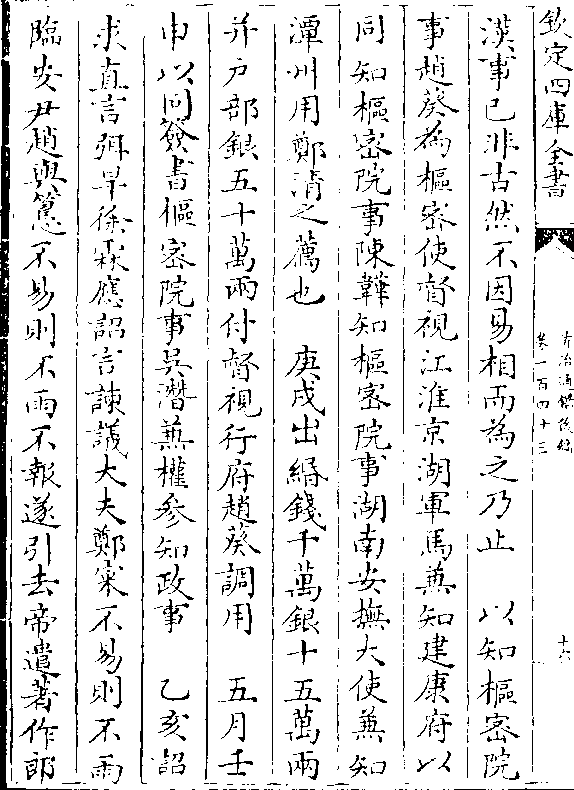 欽定四庫全書
資治通鑑後編
卷一百四十三
十六
漢事已非古然不因易相而為之乃止　以知樞密院
事趙葵為樞密使督視江淮京湖軍馬兼知建康府以
同知樞密院事陳韡知樞密院事湖南安撫大使兼知
潭州用鄭清之薦也　庚戌出緡錢千萬銀十五萬兩
并戶部銀五十萬兩付督視行府趙葵調用　五月壬
申以同簽書樞密院事吳潛兼權參知政事　乙亥詔
求直言弭旱徐霖應詔言諫議大夫鄭寀不易則不雨
臨安尹趙與𥲅不易則不雨不報遂引去帝遣著作郎